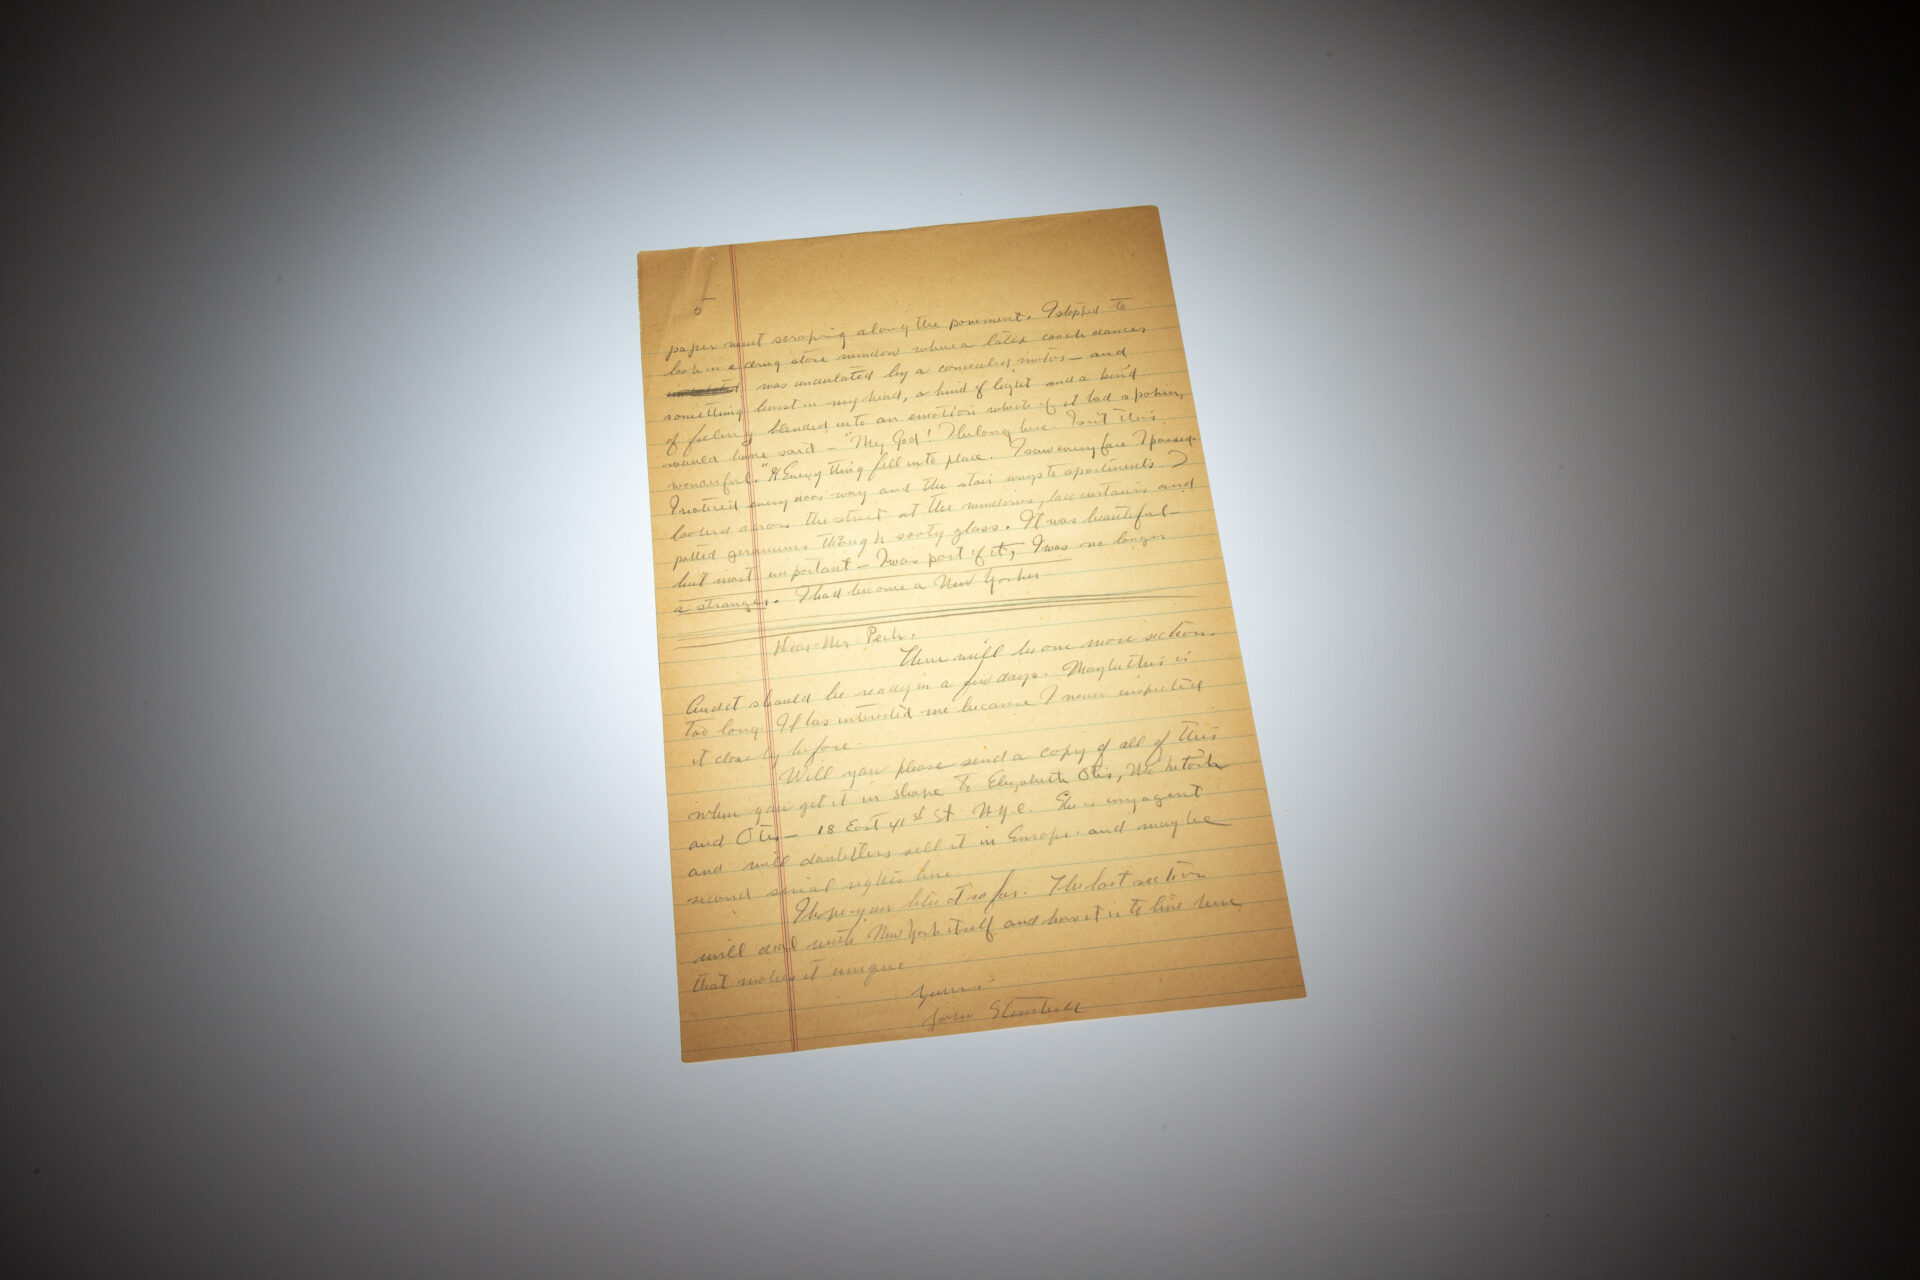 5
paper went scraping along the pavement. I stopped to
look in a drug store window where a latex cooch dancer
was undulated by a concealed motor — and
something burst in my head, a kind of light and a kind
of feeling blended into an emotion which if it had spoken,
would have said — "My God! I belong here. Isn't this
wonderful." Every thing fell into place. I saw every face I passed.
I noticed every door way and the stair ways to apartments. I
looked across the street at the windows, lace curtains and
potted geraniums through sooty glass. It was beautiful —
but most important — I was part of it, I was no longer
a stranger. I had become a New Yorker
Dear Mr Peck,
There will be one more section.
And it should be ready in a few days. Maybe this is
too long. It has interested me because I never inspected
it closely before.
Will you please send a copy of all of this
when you get it in shape to Elizabeth Otis, McIntosh
and Otis — 18 East 41st St N.Y.C. She is my agent
and will doubtless sell it in Europe and maybe
second serial rights here
I hope you like it so far. The last section
will deal with New York itself and how it is to live here
that makes it unique
Yours
John Steinbeck